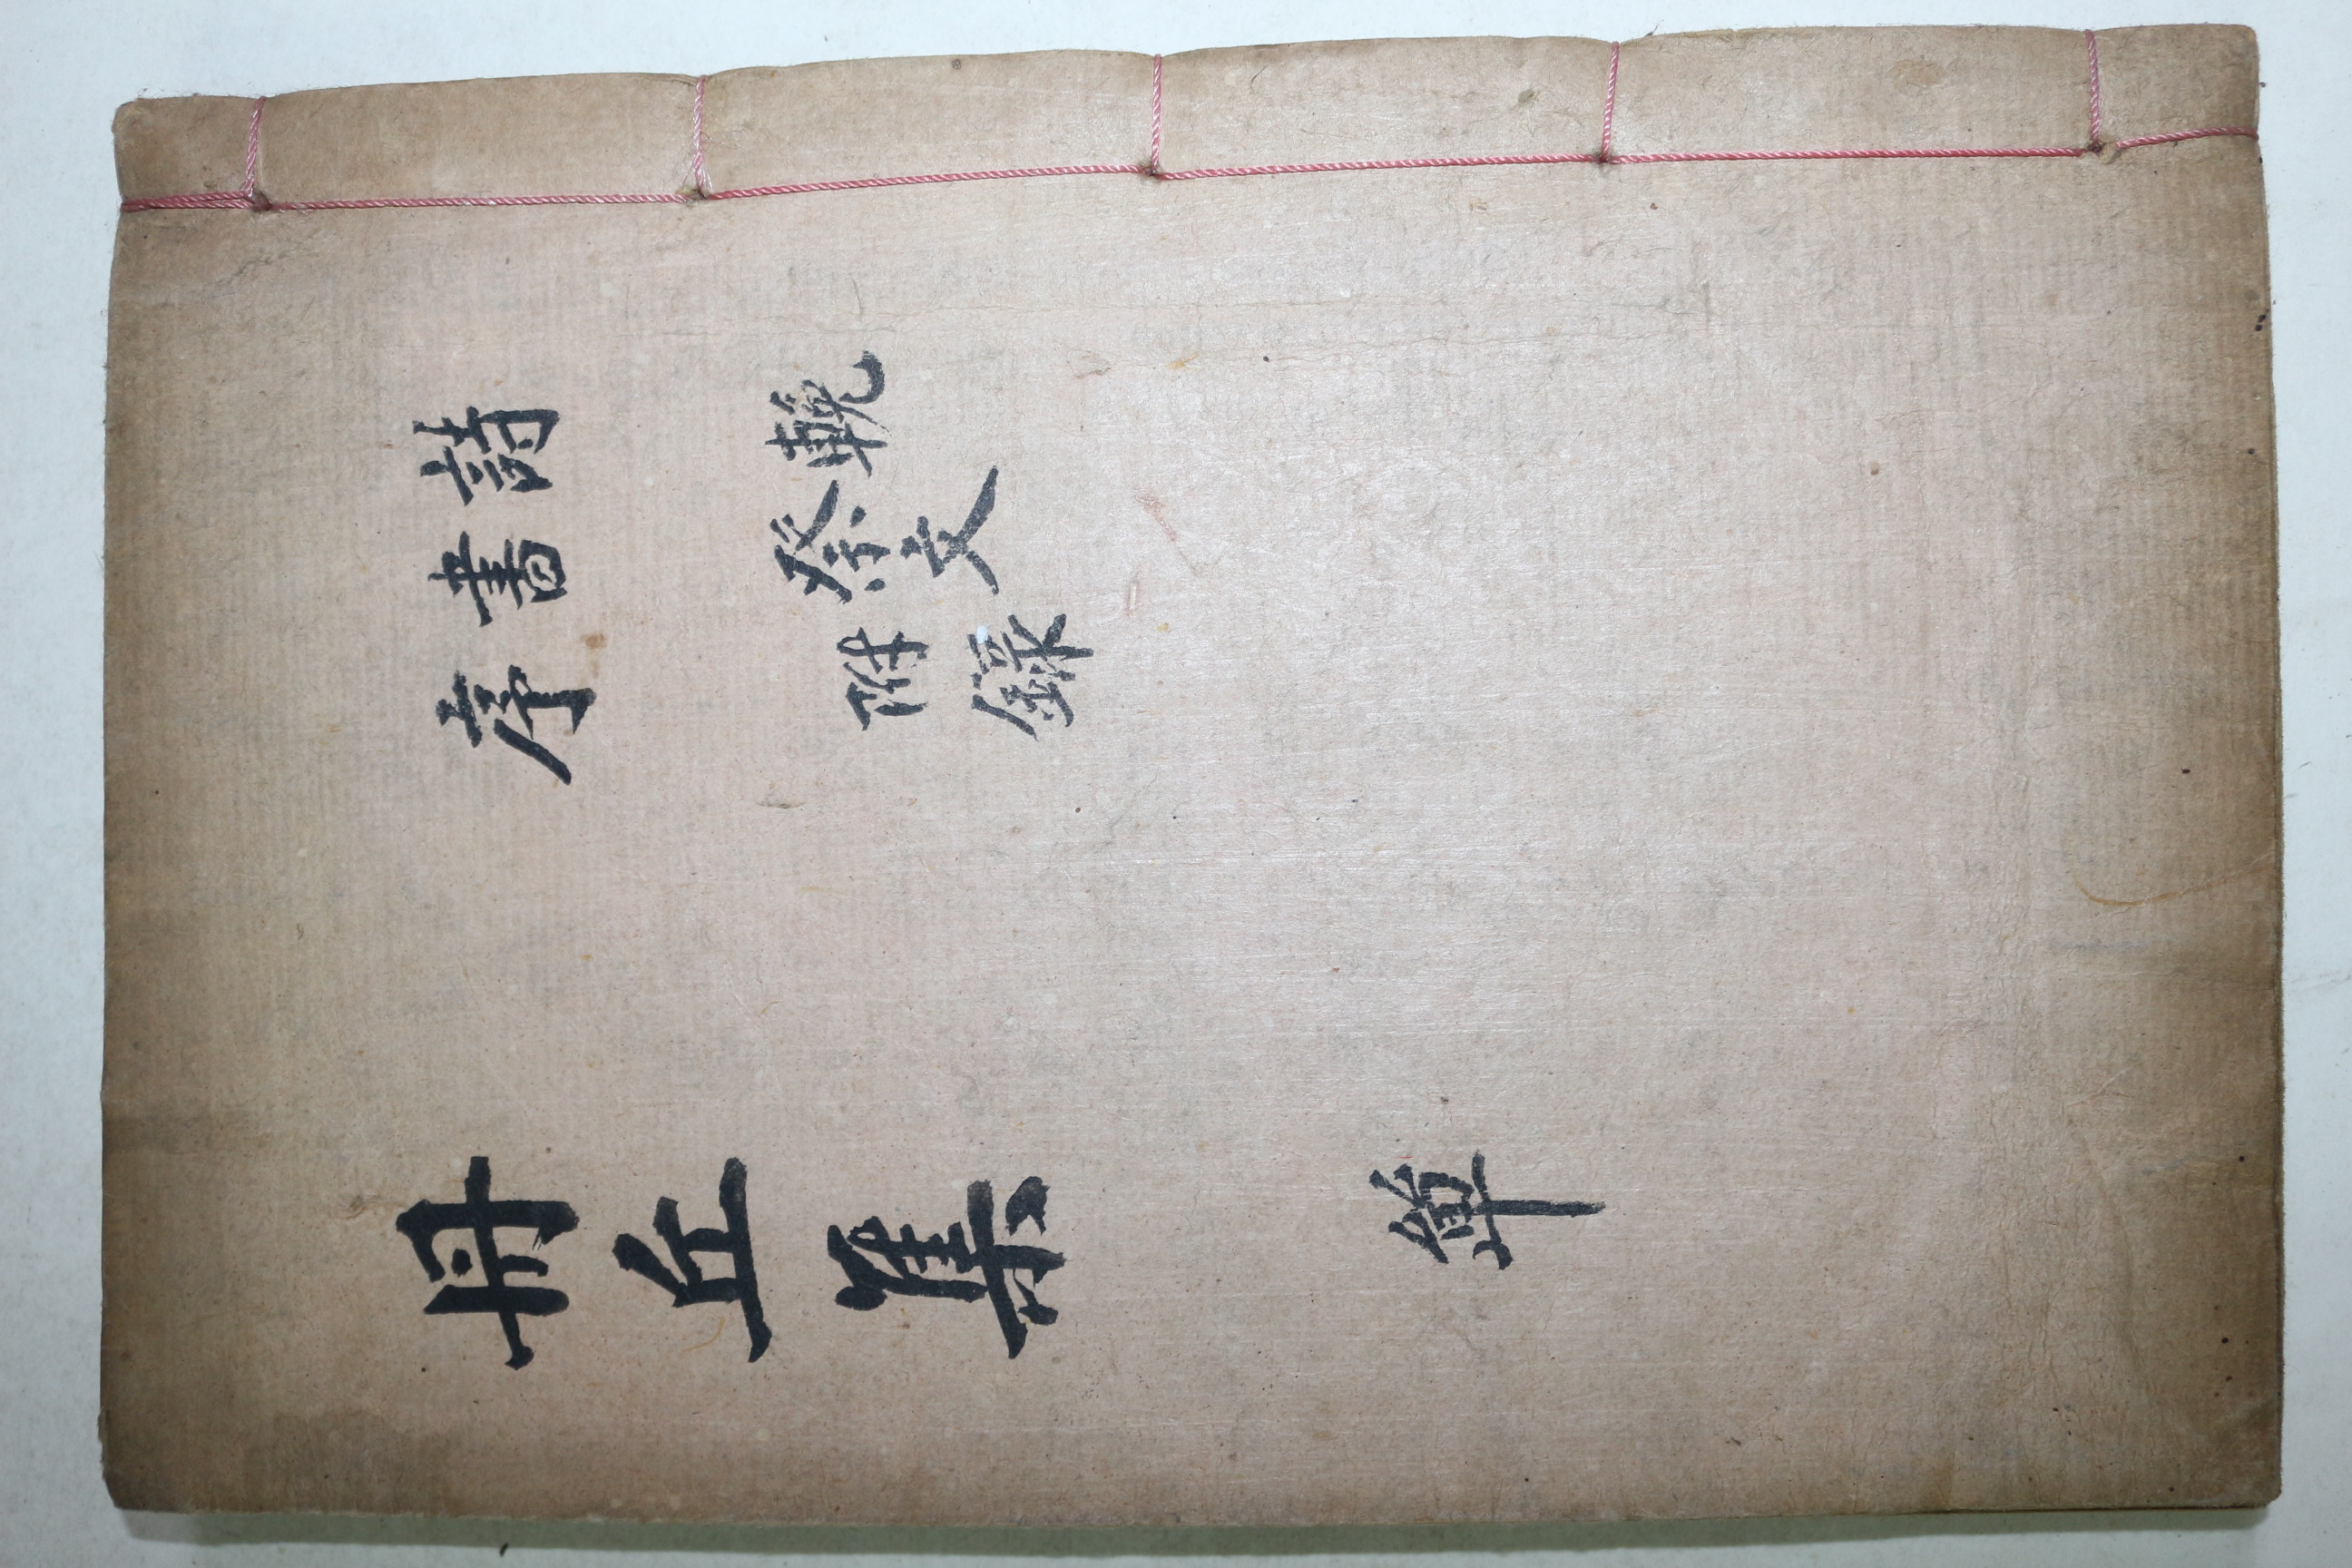 詩 輓
書 祭文
序 附錄
丹丘集 單